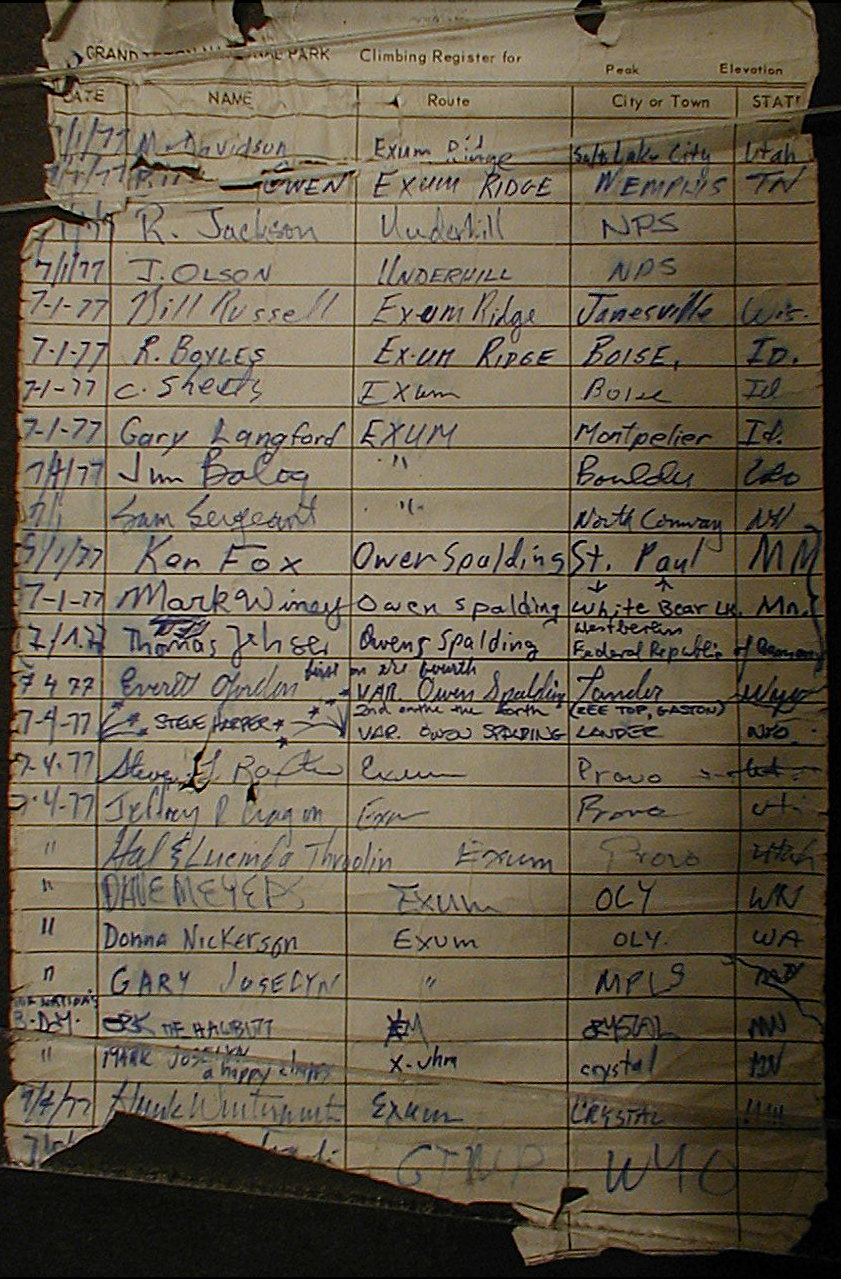 GRAND TETON NATIONAL PARK Climbing Register for Peak Elevation
DATE NAME Route City or Town STATE
7/1/77 M. Davidson Exum Ridge Salt Lake City Utah
OWEN EXUM RIDGE MEMPHIS TN
R. Jackson Underhill NPS
7/1/77 J. OLSON UNDERHILL NPS
7-1-77 Bill Russell Exum Ridge Janesville Wis.
7-1-77 R. BOYLES EXUM RIDGE BOISE, ID.
7-1-77 C. Sheets Exum Boise Id
7-1-77 Gary Langford EXUM Montpelier Id.
Jim Balog " Boulder Colo
Sam Sergeant " North Conway NH
7/1/77 Ken Fox Owen Spalding St. Paul MN
7-1-77 Mark Winey Owen Spalding White Bear Lk. Mn.
7/1.77 Thomas Owens Spalding West berlin Federal Republic of Germany
7 4 77 Everett first on the fourth VAR. Owen Spalding Lander Wyo
7-4-77 STEVE HARPER 2nd on the the forth VAR. OWEN SPALDING (SEE TOP, GASTON) LANDER
7-4-77 Steven Exum Provo
7-4-77 Jeffrey Exum Provo
" Hal & Lucinda Exum Provo Utah
" DAVE MEYERS EXUM OLY WN
" DONNA NICKERSON EXUM OLY. WA
" GARY JOSELYN " MPLS
B-DAY. CRYSTAL MN
" MARK JOSELYN a happy X-uhm crystal MN
7/4/77 Exum CRYSTAL !!!!!
GTNP WYO